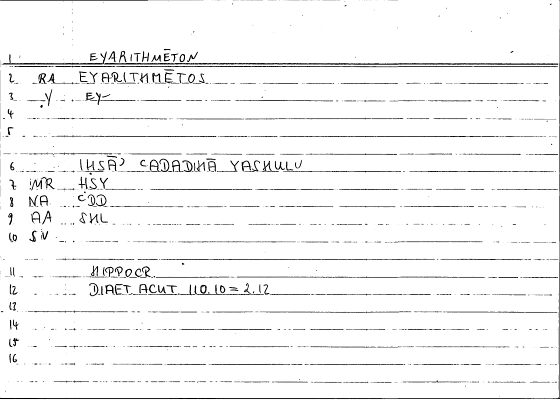 1 EYARITHMĒTON
2 RA EYARITHMĒTOS
3 .Y EY-
4
5
6 IḤṢĀʾ ʿADADIHĀ YASHULU
7 MR ḤṢY
8 NA ʿDD
9 AA SHL
10 SN
11 HIPPOCR
12 DIAET. ACUT. 110.10 = 2.12
13
14
15
16